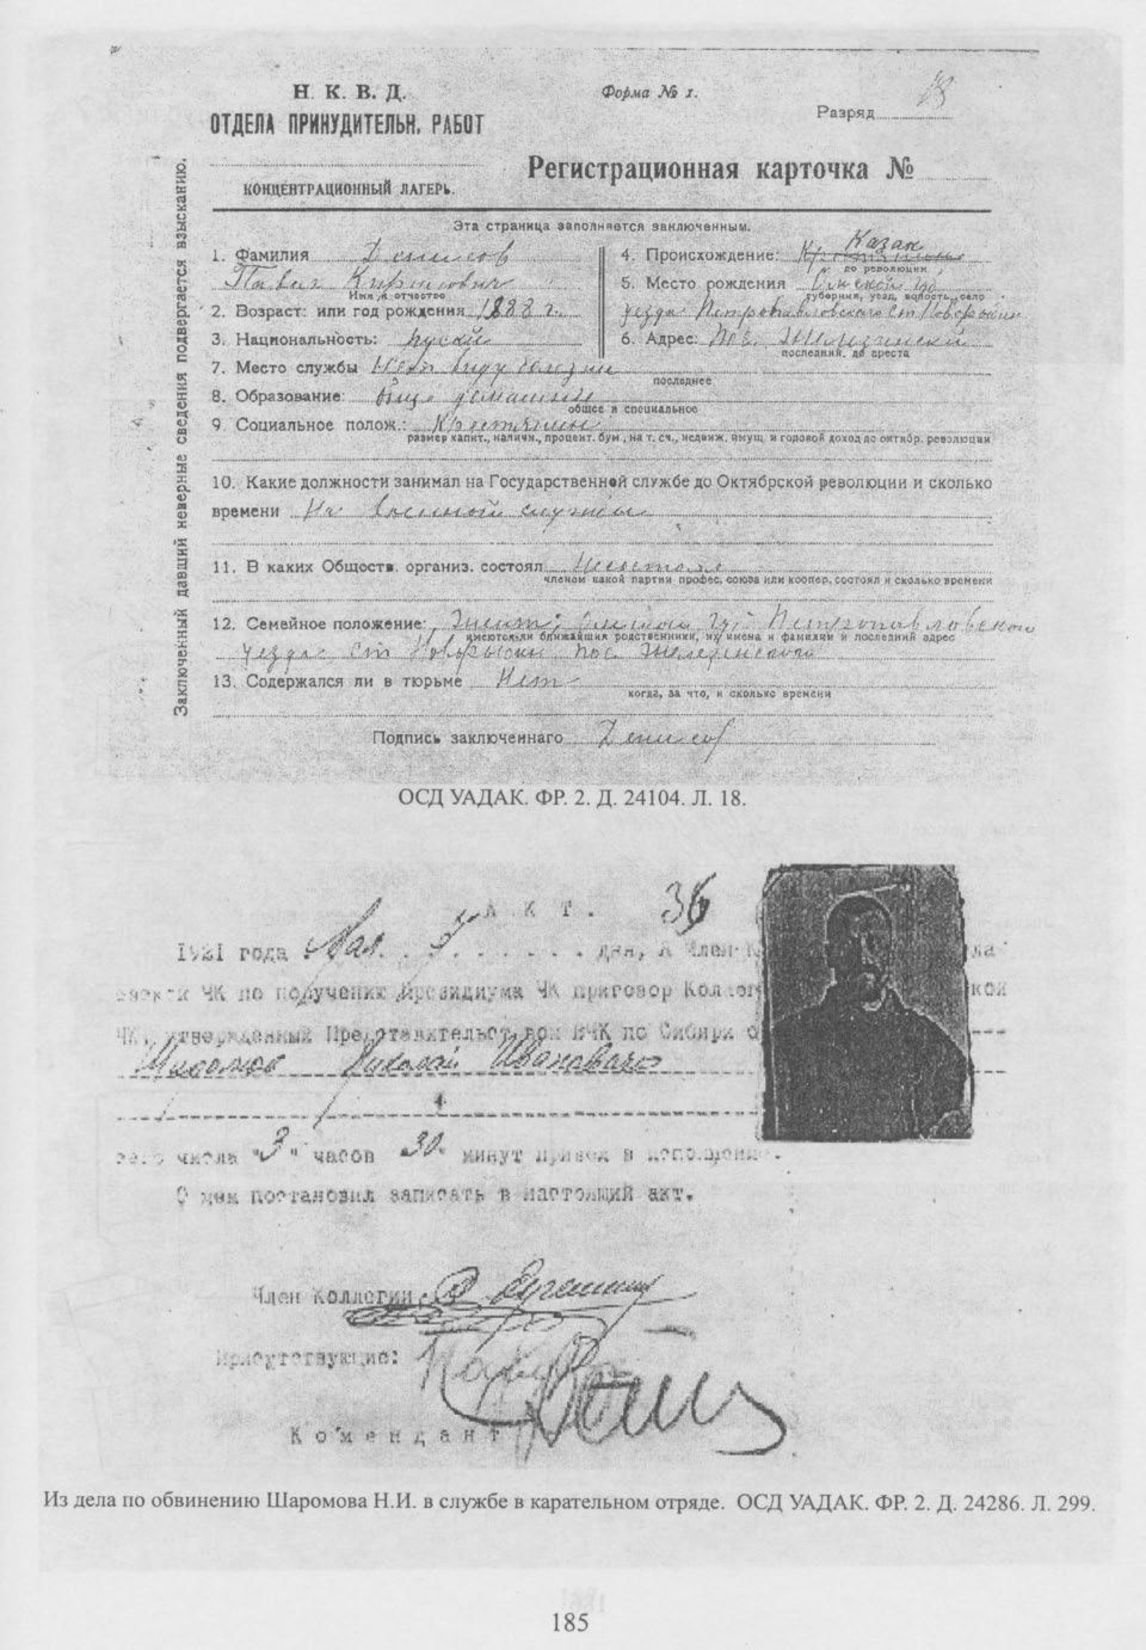 Н. К. В. Д.
ОТДЕЛА ПРИНУДИТЕЛЬН. РАБОТ
КОНЦЕНТРАЦИОННЫЙ ЛАГЕРЬ.
Форма № 1.
Разряд 18
Регистрационная карточка №
Заключенный давший неверные сведения подвергается взысканию.
Эта страница заполняется заключенным.
1. Фамилия Денисов
Павел Кирилович
Имя и отчество
2. Возраст: или год рождения 1888 г.
3. Национальность:
4. Происхождение: Казак
до революции
5. Место рождения Омской губ
губерния, уезд, волость, село
уезда Петропавловского ст
6. Адрес: Пос.
последний, до ареста
7. Место службы Нет виду болезни
последнее
8. Образование: домашнее
общее и специальное
9. Социальное полож.: Крестянин
размер капит., наличн., процент. бум., на т. сч., недвиж. имущ. и годовой доход до октябр. революции
10. Какие должности занимал на Государственной службе до Октябрской революции и сколько
времени На военной службы
11. В каких Обществ. организ. состоял Несостоял
членом какой партии профес. союза или коопер. состоял и сколько времени
12. Семейное положение: Женат; Омской гу Петропавловского
имеются ли ближайшия родственники, их имена и фамилии и последний адрес
уезда ст пос.
13. Содержался ли в тюрьме Нет
когда, за что, и сколько времени
Подпись заключеннаго Денисов
ОСД УАДАК. ФР. 2. Д. 24104. Л. 18.
А К Т. 36
1921 года Мая дня, А Член
ЧК по получении Президиума ЧК приговор Коллег ской
ЧК, утвержденный Представительством ВЧК по Сибири о
Николай Ивановича
сего числа "3" часов 30 минут привел в исполнение.
О чем постановил записать в настоящий акт.
Член Коллегии
Присутствующие:
Комендант
Из дела по обвинению Шаромова Н.И. в службе в карательном отряде. ОСД УАДАК. ФР. 2. Д. 24286. Л. 299.
185